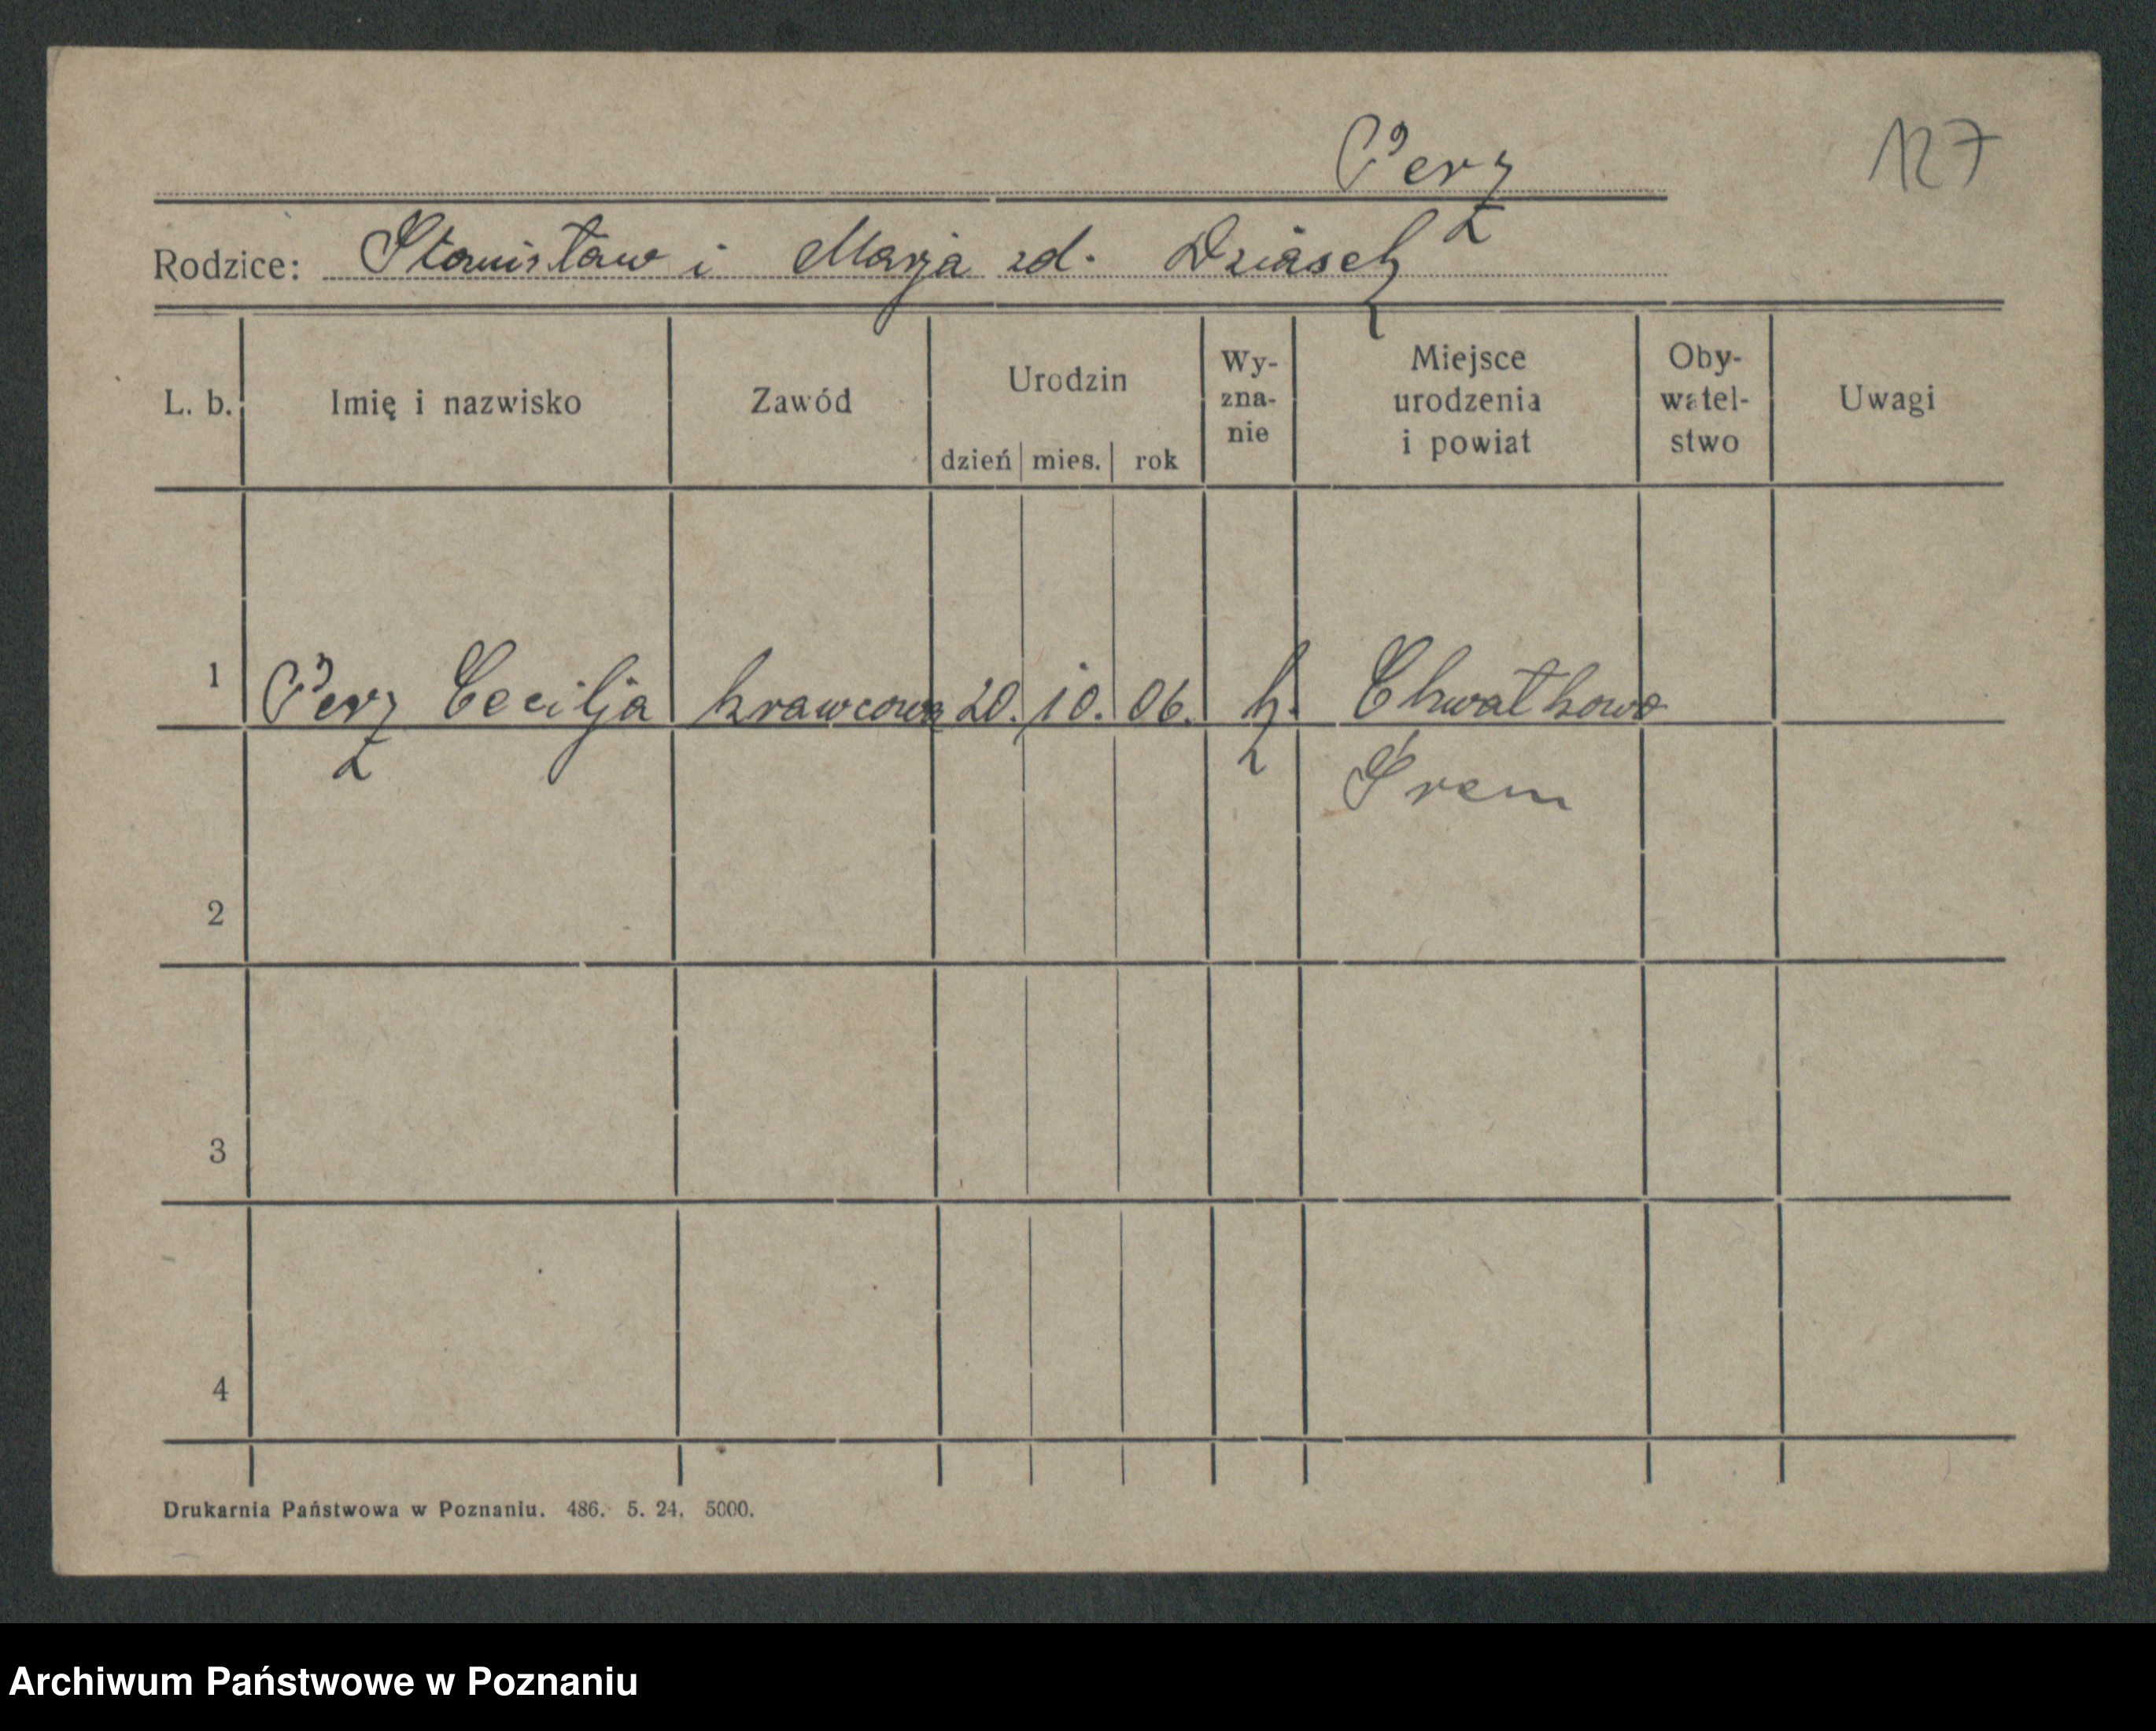 Perz
127
Rodzice: Stanisław i Marja zd.
L. b. Imię i nazwisko Zawód Urodzin dzień mies. rok Wy-zna-nie Miejsce urodzenia i powiat Oby-watel-stwo Uwagi
1 Perz Cecilja krawcowa 20. 10. 06. k. Chwałkowo
Śrem
2
3
4
Drukarnia Państwowa w Poznaniu. 486. 5. 24. 5000.
Archiwum Państwowe w Poznaniu